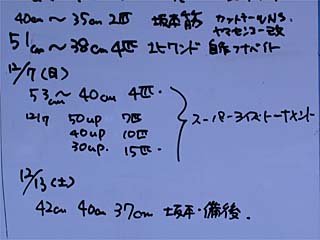 40cm〜35cm 2匹 坂本筋 カットテールN.S.
ヤマセンコー改
51cm〜38cm 4匹 エビワンド 自作フナベイト
12/7(日)
53cm〜40cm 4匹・
12/7 50up 7匹
40up 10匹
30up. 15匹・
スーパー3イズ・トーナメント
12/13(土)
42cm 40cm 37cm 坂本・備後.